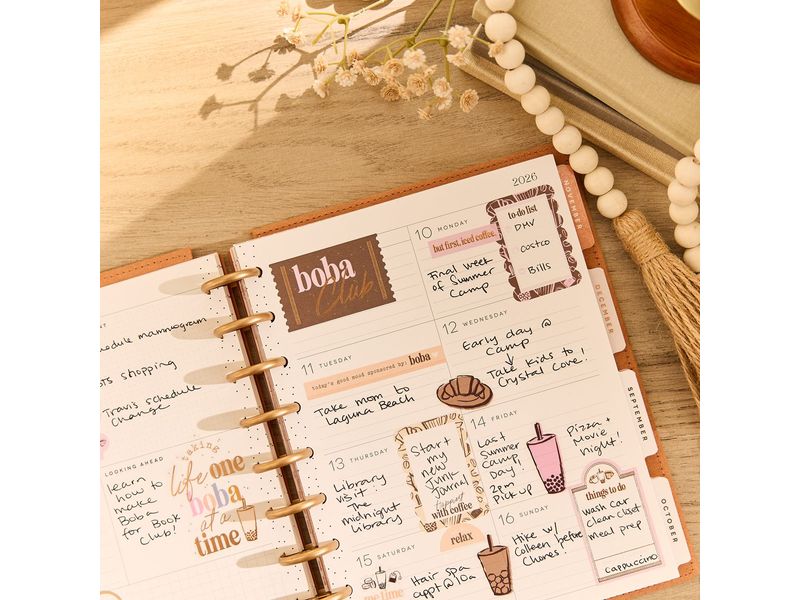 schedule mammogram
shopping
Travis schedule
change
LOOKING AHEAD
learn
how to
make
Boba
for Book
Club!
taking
life one
boba
at a
time
2026
boba
Club
10 MONDAY
but first, iced coffee.
Final week
of Summer
Camp
to-do list
DMV
costco
Bills
11 TUESDAY
today's good mood sponsored by: boba
Take mom to
Laguna Beach
12 WEDNESDAY
Early day @
Camp
Take kids to
Crystal Cove!
13 THURSDAY
Library
visit
The
midnight
Library
Start
my
new
Junk
Journal
with coffee
14 FRIDAY
Last
Summer
Camp
Day!
2pm
Pick up
Pizza +
Movie
night!
15 SATURDAY
me time
relax
Hair spa
appt @ 10a
16 SUNDAY
Hike w/
Colleen before
Chores.
things to do
wash car
clean closet
meal prep
cappuccino
NOVEMBER
DECEMBER
SEPTEMBER
OCTOBER